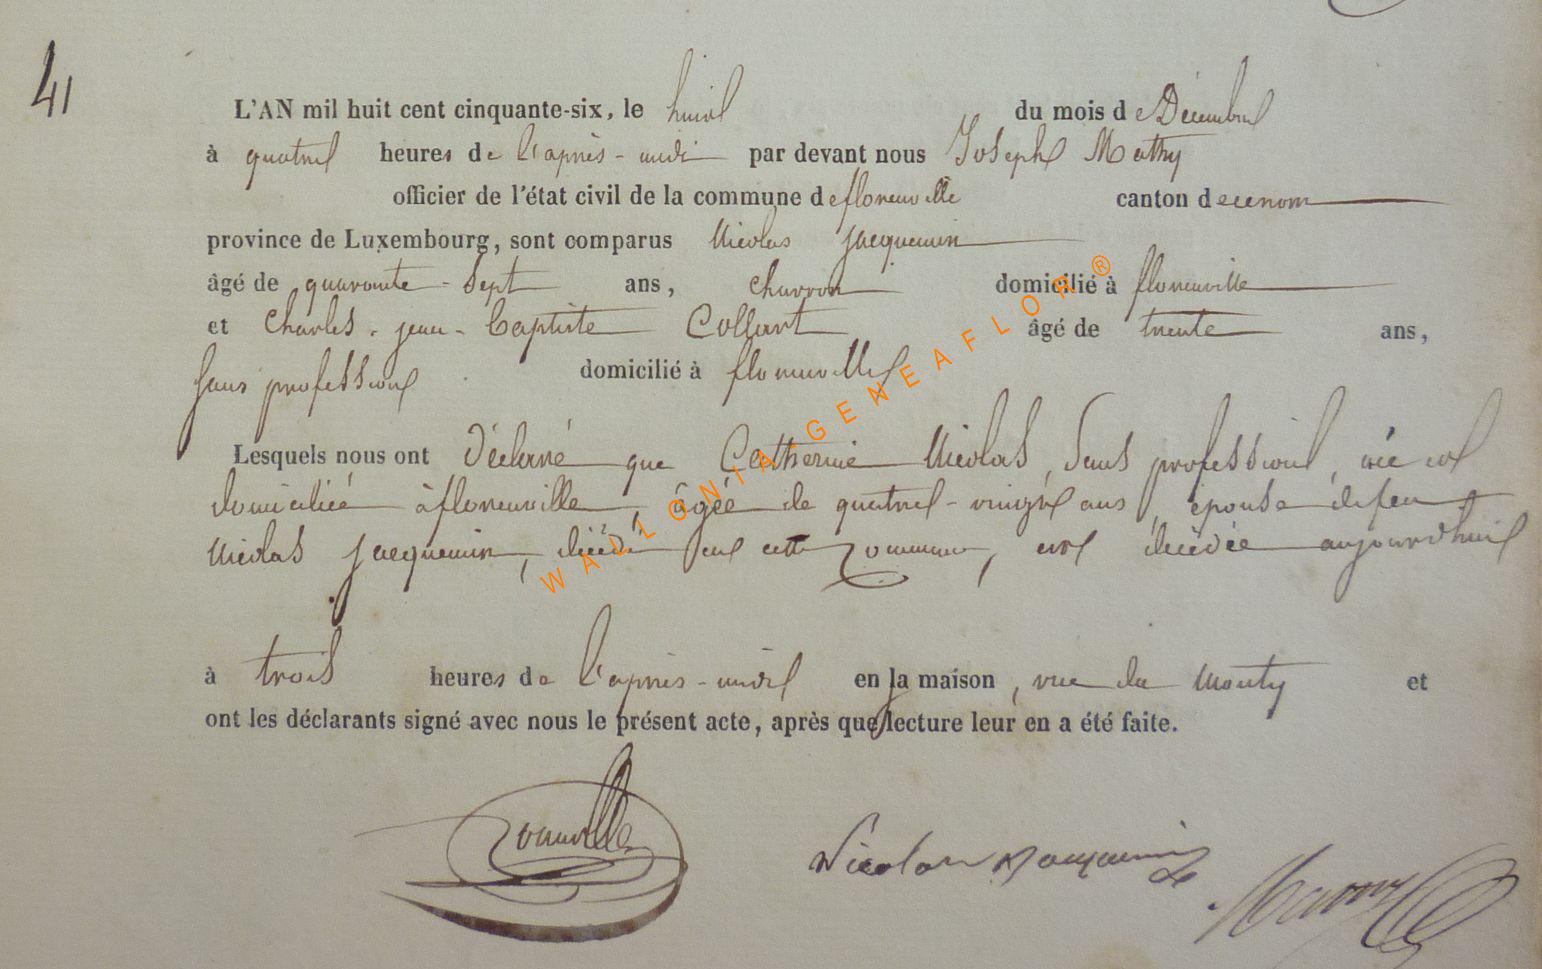 41
L'AN mil huit cent cinquante-six, le huit du mois de Décembre
à quatre heures de l'après-midi par devant nous Joseph Mathy
officier de l'état civil de la commune de florenville canton de cenom
province de Luxembourg, sont comparus Nicolas Jacquemin
âgé de quarante-sept ans, charron domicilié à florenville
et Charles-jean-baptiste Collart âgé de trente ans,
sans profession domicilié à florenville
Lesquels nous ont déclaré que Catherine Nicolas, sans profession, née et
domiciliée à florenville, âgée de quatre-vingts ans, épouse de feu
Nicolas jacquemin, décédé en cette commune, est décédée aujourd'hui
à trois heures de l'après-midi en sa maison, rue du monty et
ont les déclarants signé avec nous le présent acte, après que lecture leur en a été faite.
Nicolas Jacquemin
WALLONIA-GENEAFLOR ®